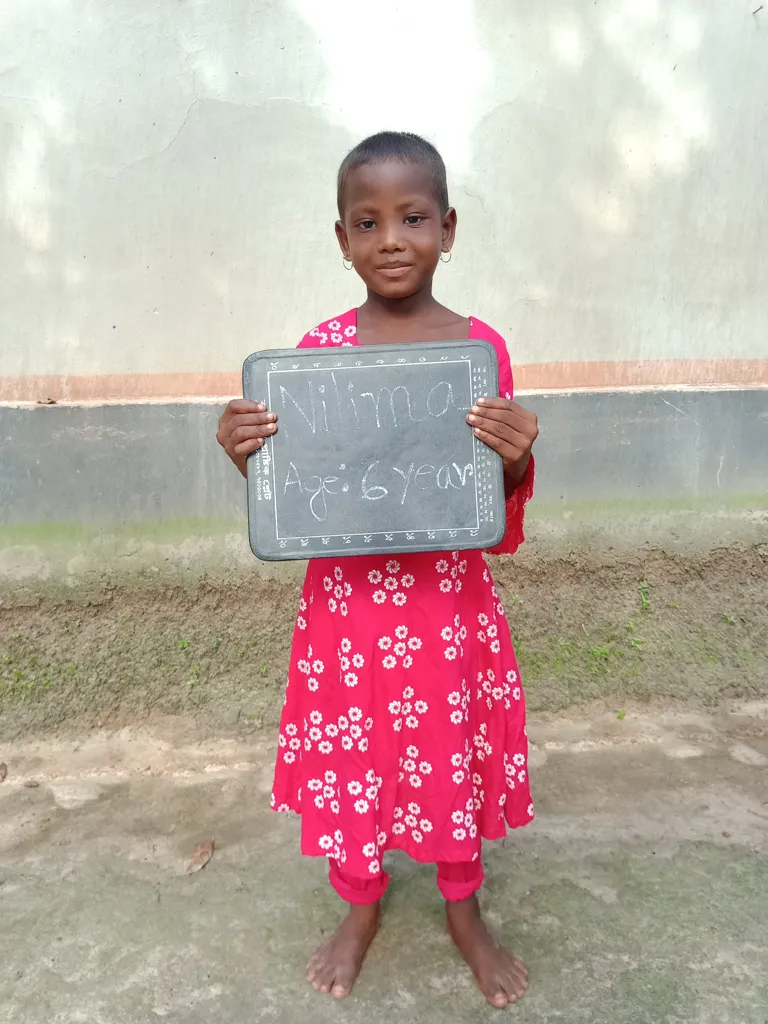 Nilima
Age: 6 year